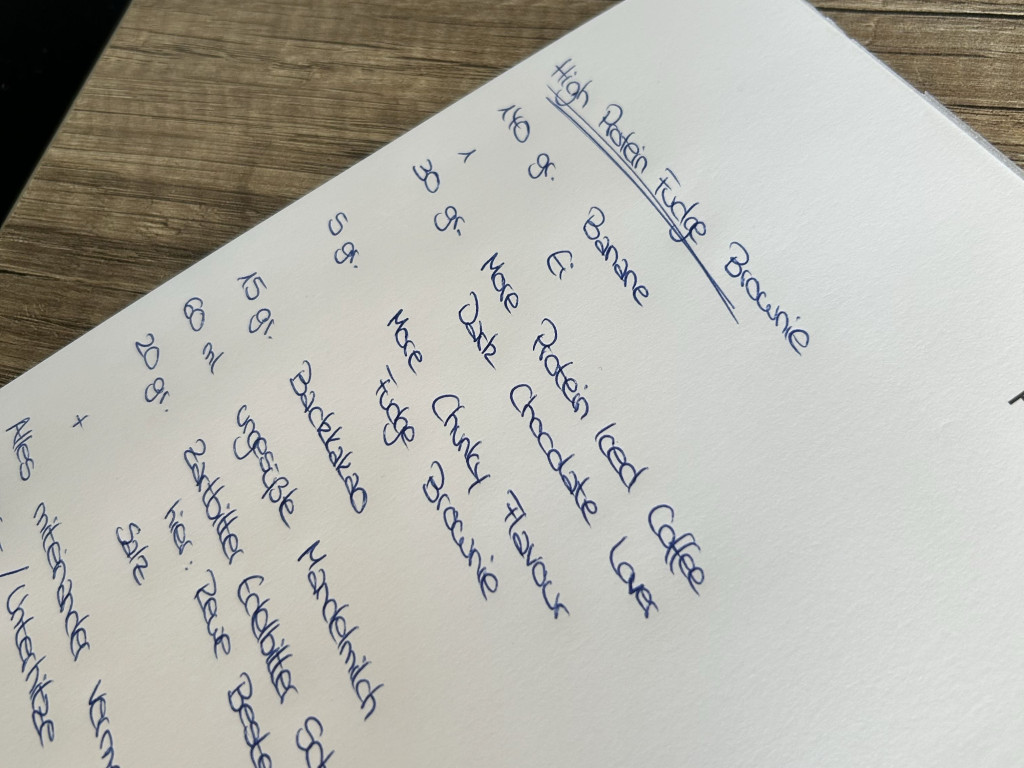 High Protein Fudge Brownie
140 gr. Banane
1 Ei
30 gr. More Protein Iced Coffee
Dark Chocolate Lover
5 gr. More Chunky Flavour
Fudge Brownie
15 gr. Backkakao
60 ml ungesüßte Mandelmilch
20 gr. Zartbitter Edelbitter Sch
hier: Rewe Beste
+ Salz
Alles miteinander verm
/ Unterhitze